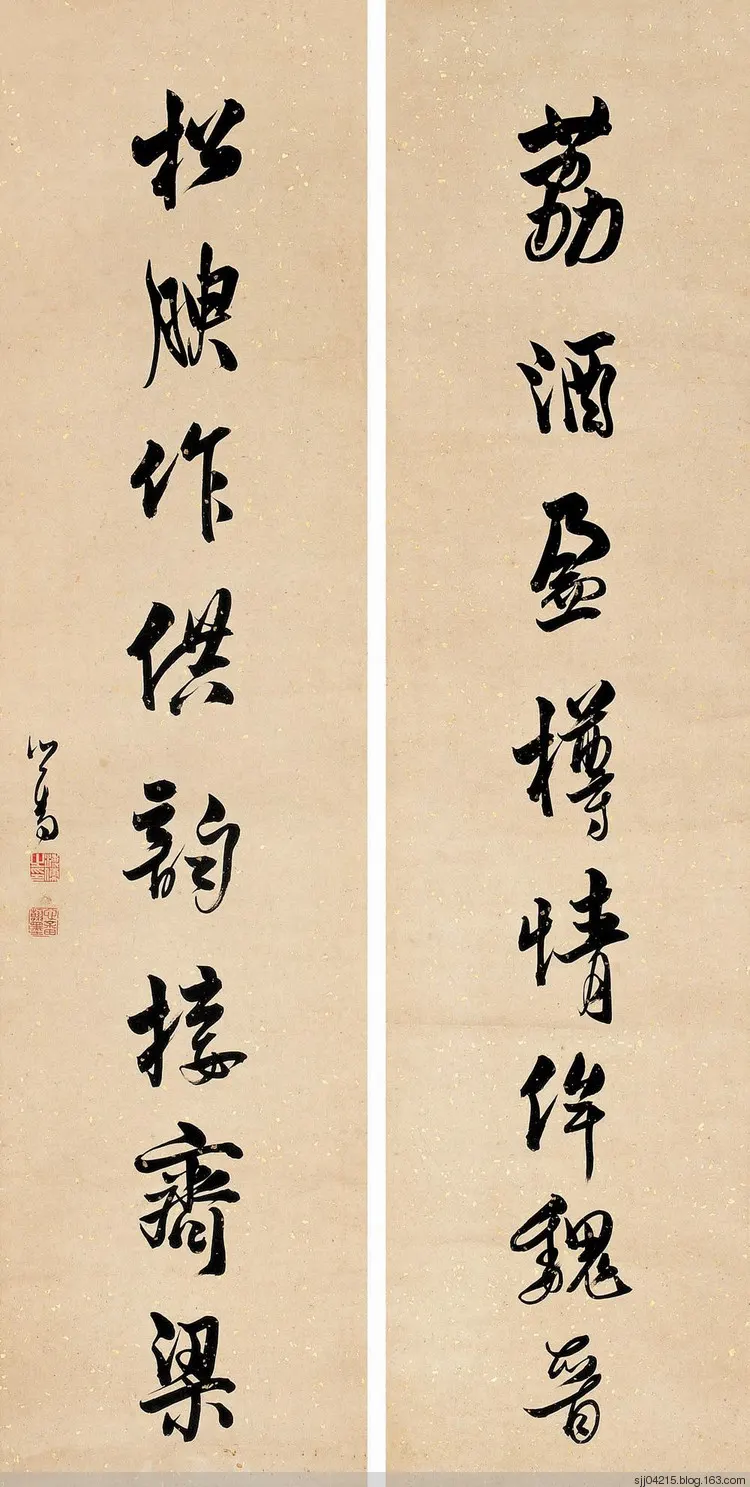 荔酒盈樽情侔魏晋
松腴作供韵接齐梁
心畬
sjj04215.blog.163.com